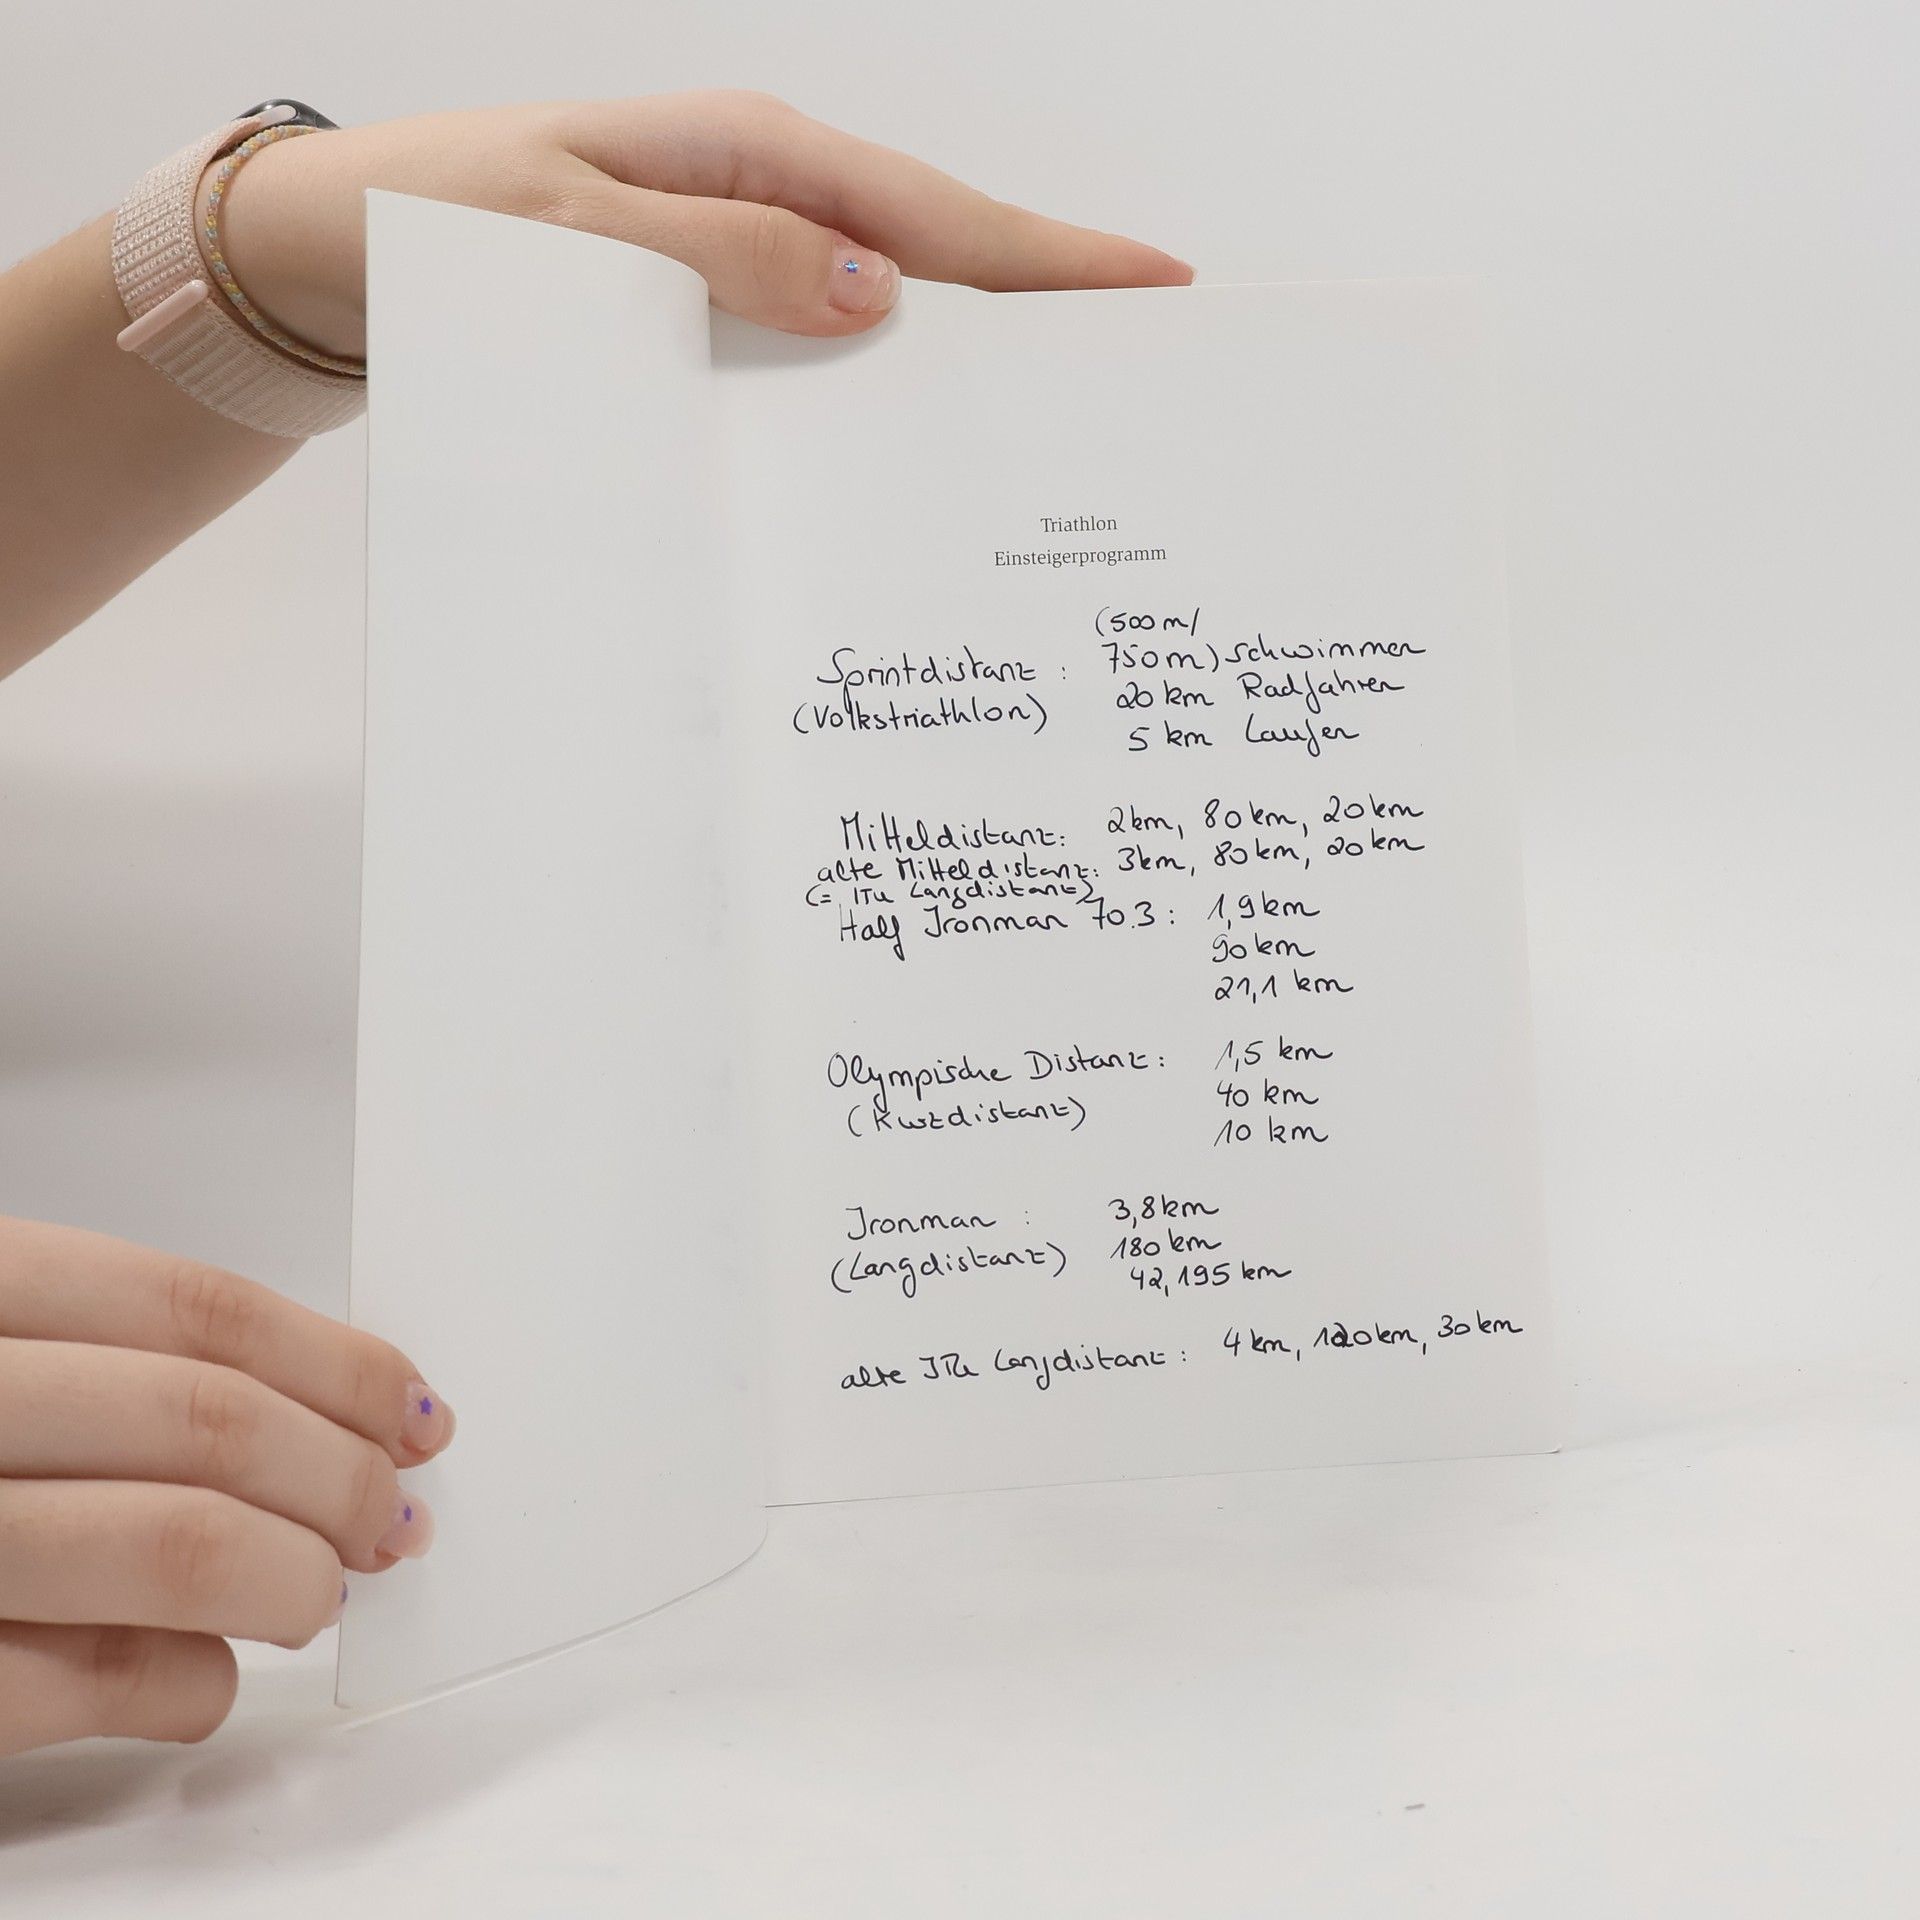 Triathlon
Einsteigerprogramm
(500 m/
Sprintdistanz : 750 m) schwimmen
(Volkstriathlon) 20 km Radfahren
5 km Laufen
Mitteldistanz: 2 km, 80 km, 20 km
alte Mitteldistanz: 3 km, 80 km, 20 km
(= ITU Langdistanz)
Half Ironman 70.3 : 1,9 km
90 km
21,1 km
Olympische Distanz : 1,5 km
(Kurzdistanz) 40 km
10 km
Ironman : 3,8 km
(Langdistanz) 180 km
42,195 km
alte ITU Langdistanz : 4 km, 120 km, 30 km